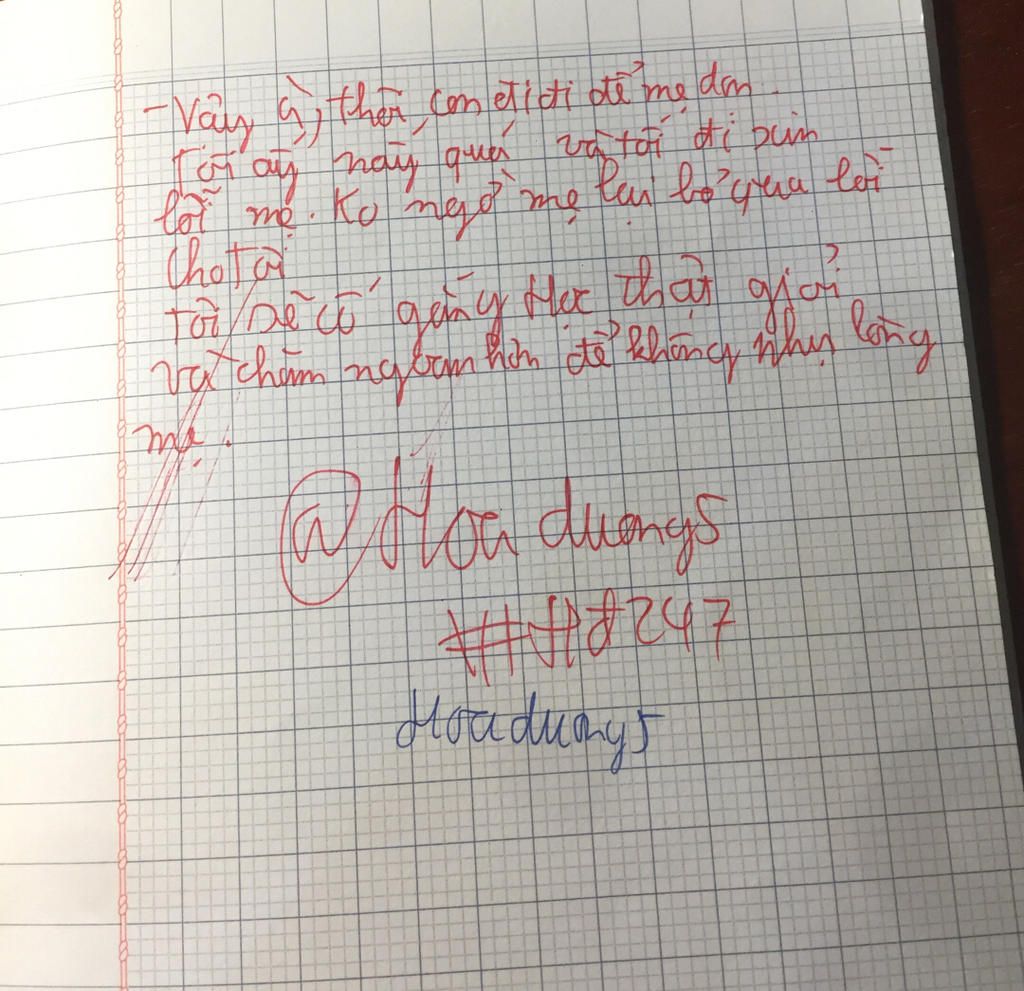 - Vậy à, thôi, con đi đi để mẹ dọn.
Tôi áy náy quá và tôi đi xin
lỗi mẹ. Ko ngờ mẹ lại bỏ qua lỗi
cho Tôi
Tôi sẽ cố gắng Học thật giỏi
và chăm ngoan hơn để không phụ lòng
mẹ.
@Hoa duong5
247
Hoaduong5